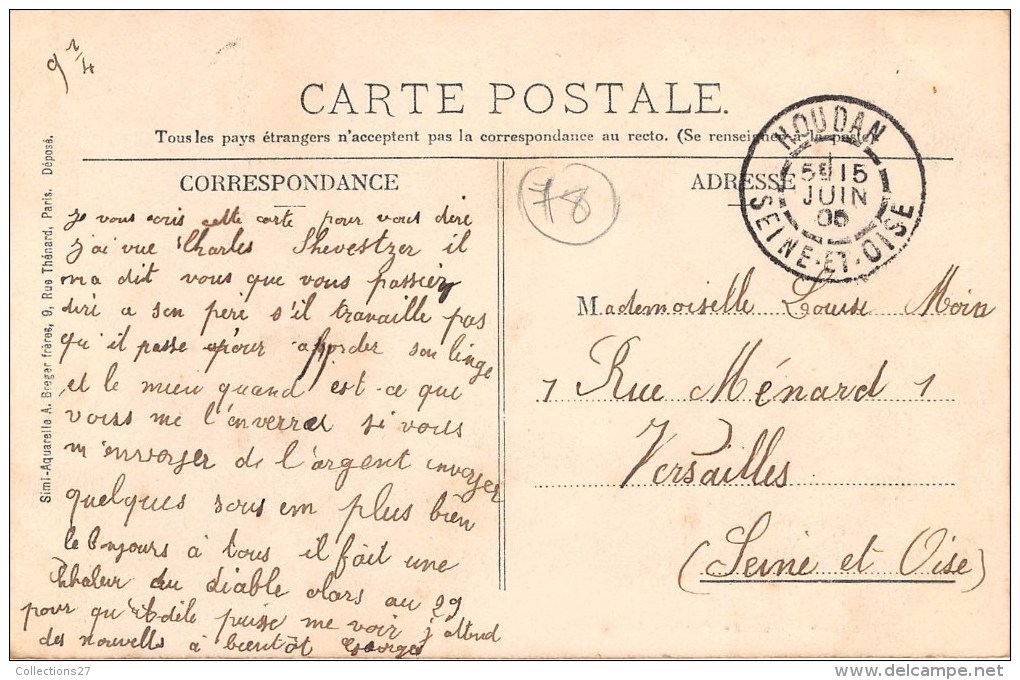 9 1/4
CARTE POSTALE.
Tous les pays étrangers n'acceptent pas la correspondance au recto. (Se renseigner à la poste).
CORRESPONDANCE
ADRESSE
78
HOUDAN
5E 15
JUIN
05
SEINE-ET-OISE
Simi-Aquarelle A. Breger frères, 9, Rue Thénard, Paris. Déposé.
je vous ecris cette carte pour vous dire
j'ai vue Charles Shevestzer il
ma dit vous que vous passier
diri a son peri s'il travaille pas
qu'il passe pour apporder son linge
et le mieu quand est-ce que
vous me l'enverrer si vous
m'envoyer de l'argent envoyer
quelques sous em plus bien
le bonjours à tous il fait une
chaleur du diable alors au 29
pour qu'Adèle puisse me voir j'attend
des nouvelle à bientôt Georges
Mademoiselle Louise Moin
1 Rue Ménard 1
Versailles
(Seine et Oise)
Collections27
www.delcampe.net